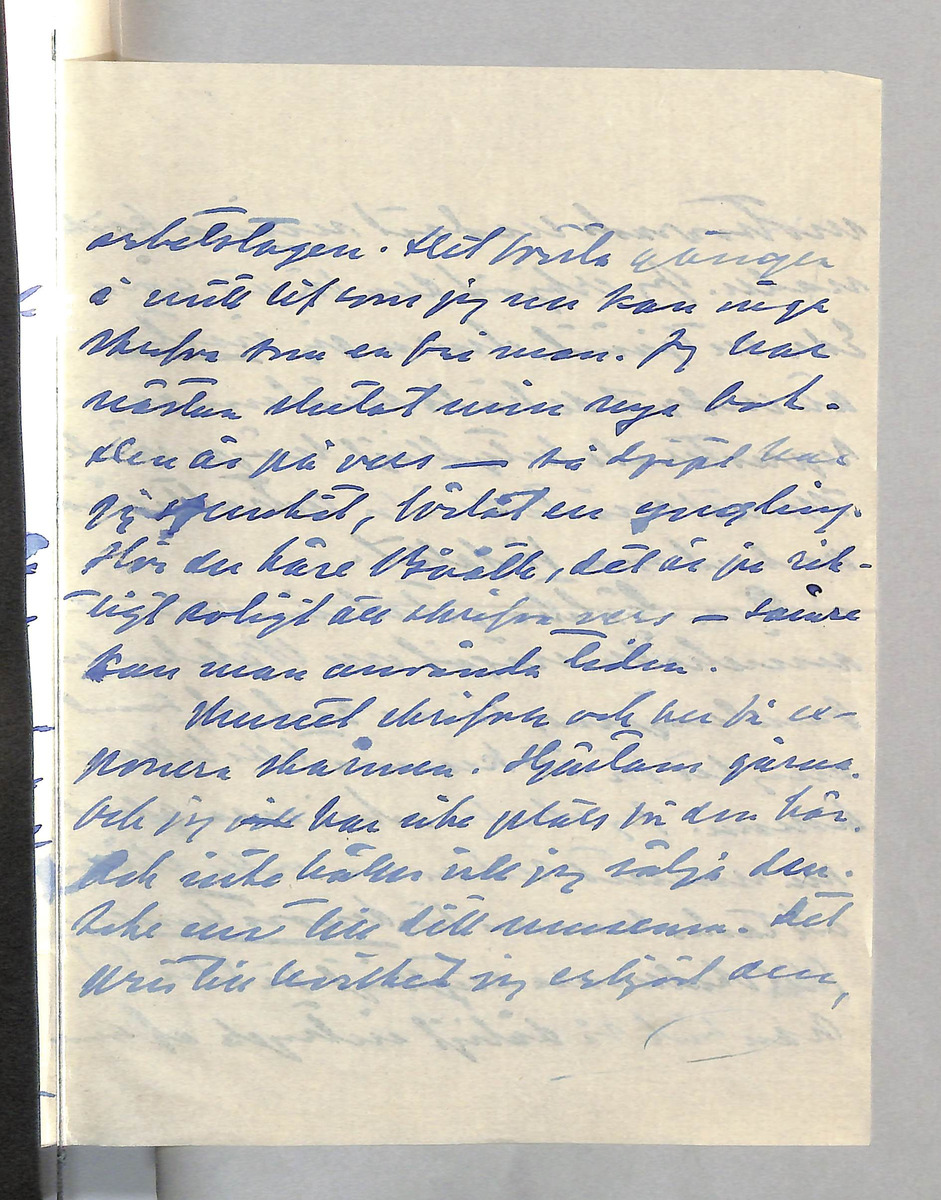 arbetstagen. Det första gången
i mitt lif som jag nu kan våga
skrifva som en fri man. Jag har
nästan slutat min nya bok.
Den är på vers — så djupt har
jag sjunkit, förlåt en yngling.
Hör du käre Bååth, det är ju rik-
tigt roligt att skrifva vers — sämre
kan man använda tiden.
Museet skrifver och ber få ex-
ponera skärmen. Hjärtans gärna.
Och jag har icke plats för den här.
Och icke håller vill jag sälja den.
Icke ens till ditt museum. Det
pris till hvilket jag erbjöd den,